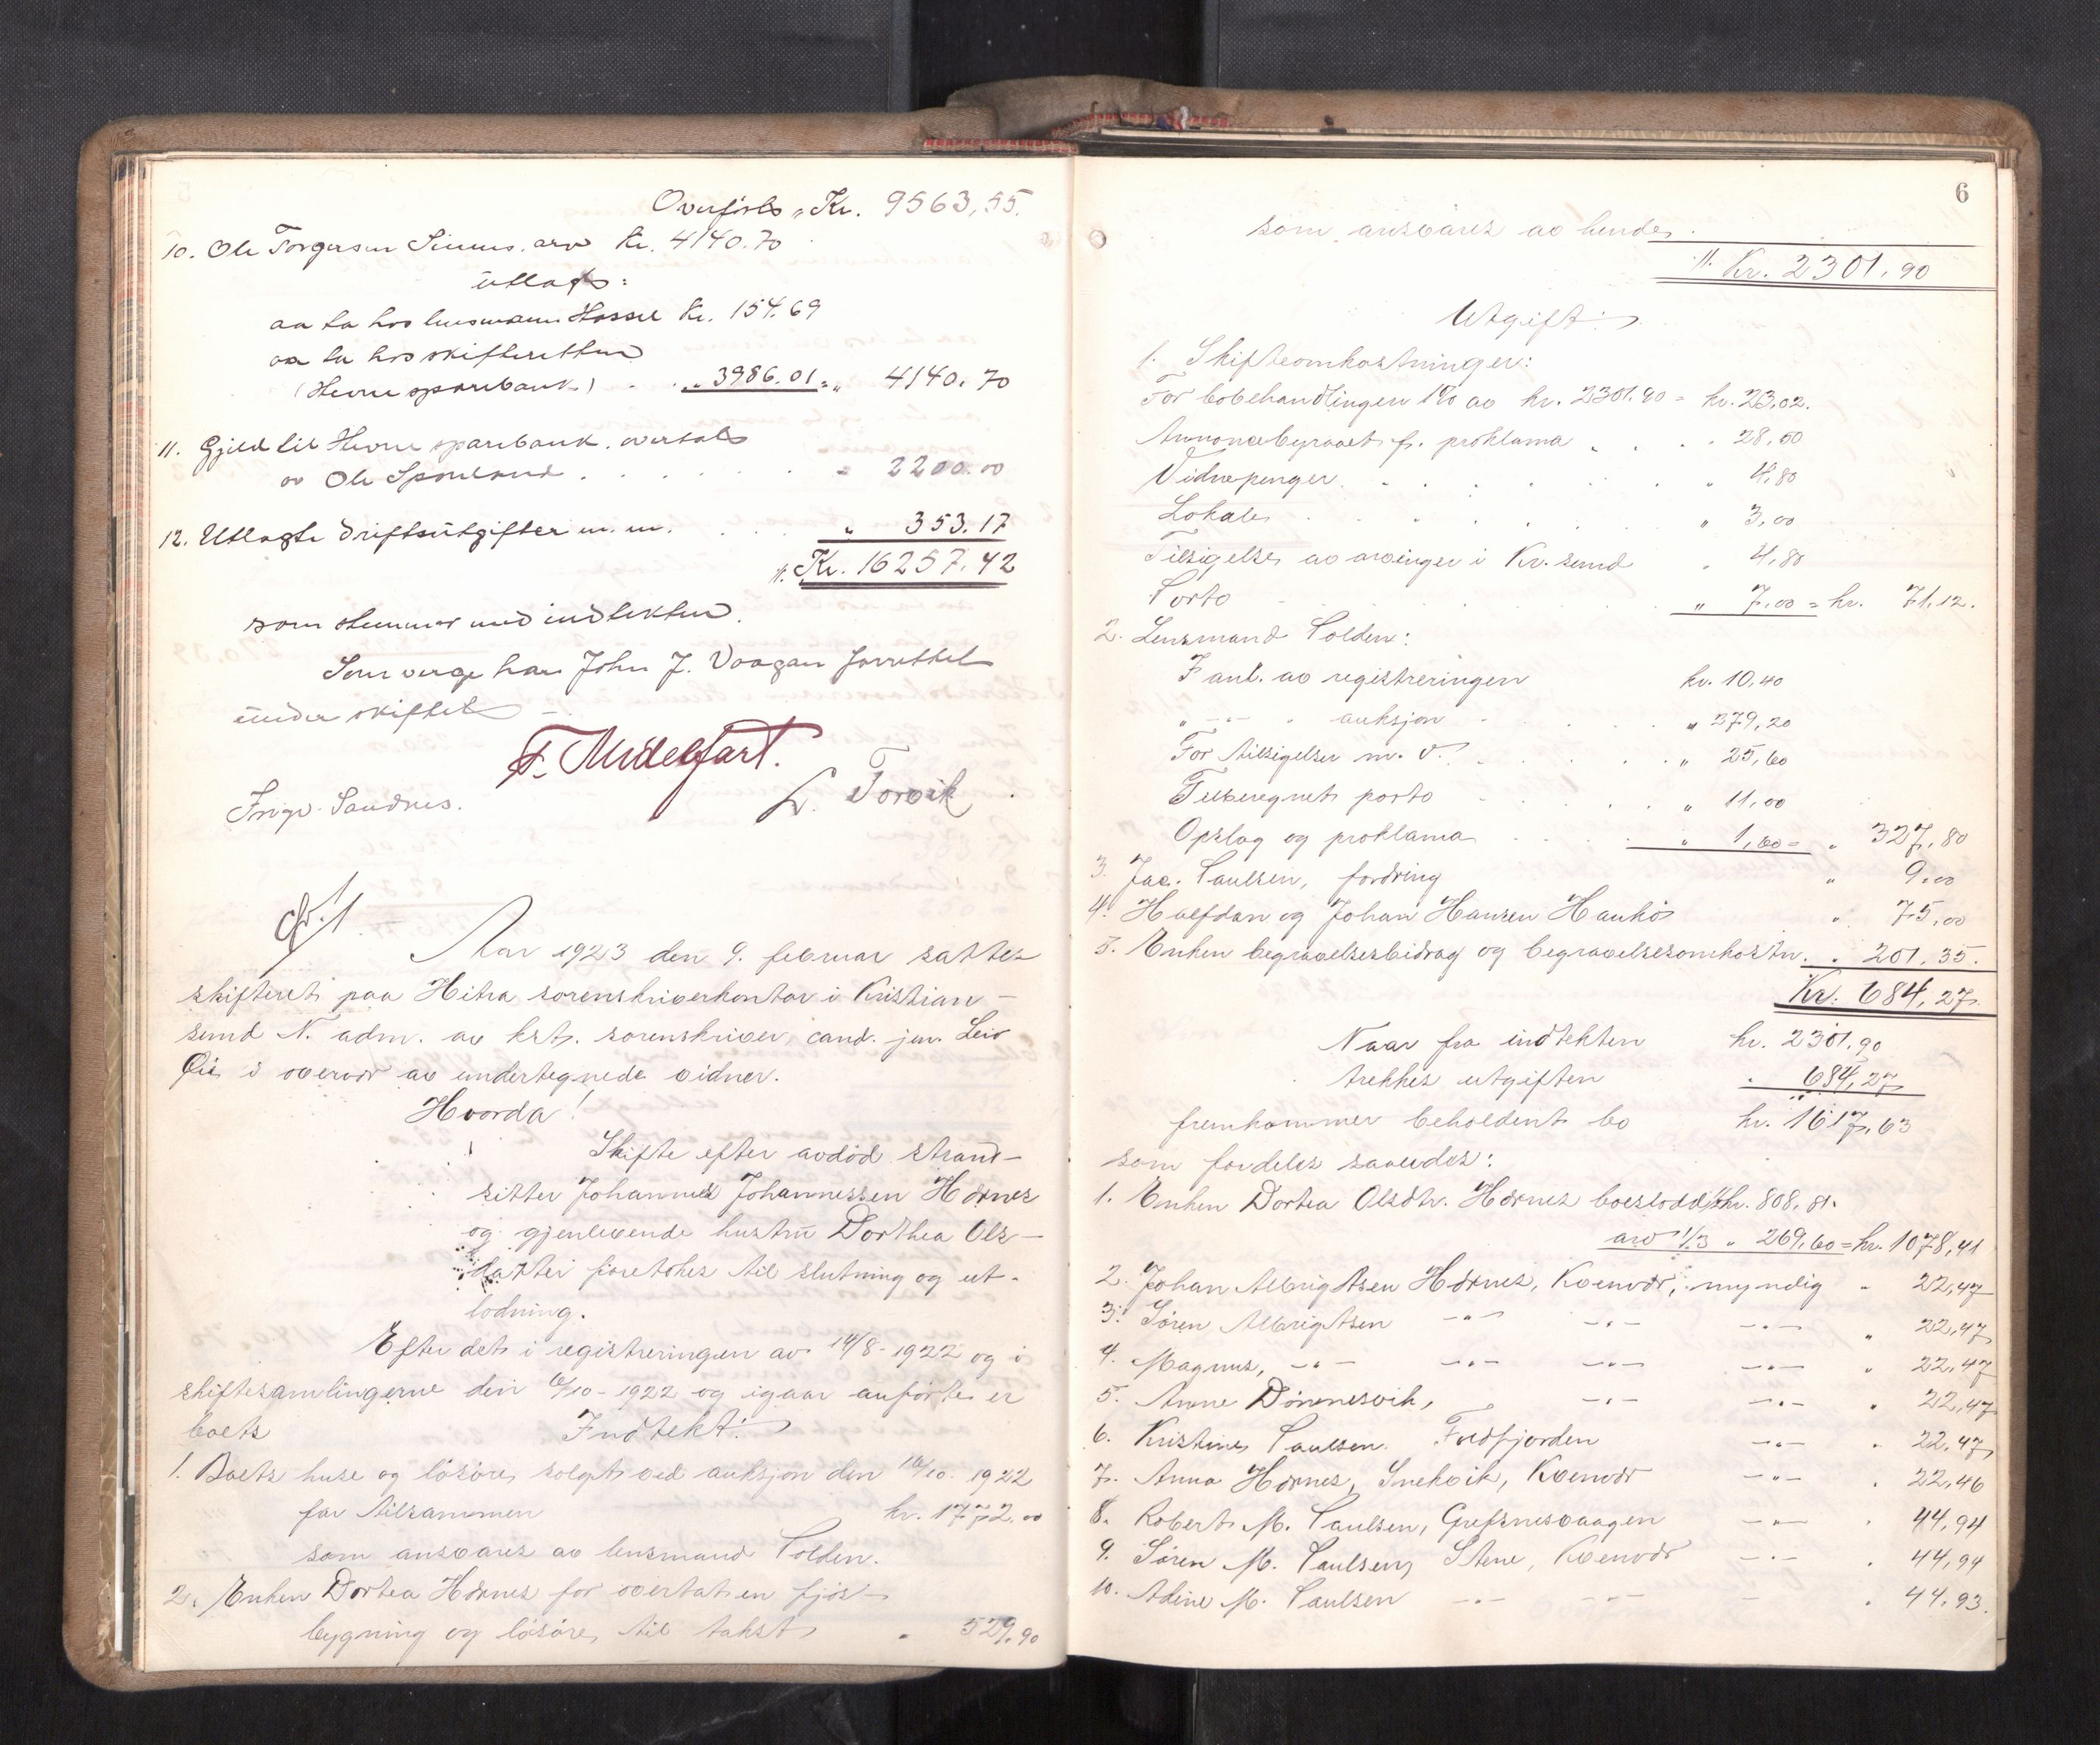 Overføres „ Kr. 9563,55.
10. Ole Torgersen Simnes. arv Kr. 4140.70
utlagts:
aa ta hos lensmann Hassel Kr. 154.69
aa ta hos skifteretten
(Hevne sparebank) . . „ 3986.01 = „ 4140.70
11. Gjeld til Hevne sparebank. overtats
av Ole . . . . . „ 2200.00
12. Utlagte driftsutgifter m. m. . . . „ 353.17
Kr. 16257.42
som stemmer med indtekten.
Som verge har John J. Vaagan forrettet
under skiftet —
F. Midelfart.
Ingv. Sandnes. L. Torvik
Aar 1923 den 9. februar sattes
skifteret paa Hitra sorenskriverkontor i Kristian-
sund N. adm. av kst. sorenskriver, cand. jur. Leiv
Øie i overvær av undertegnede vidner.
Hvorda!
Skifte efter avdød strand-
sitter Johannes Johannessen Hornes
og gjenlevende hustru Dorthea Ols-
datter foretokes til slutning og ut-
lodning.
Efter det i registreringen av 14/8-1922 og i
skiftesamlingerne den 6/10-1922 og igaar anførte er
boets Indtekt:
1. Boets huse og løsøre, solgt ved auksjon den 16/10. 1922
for tilsammen kr. 1772.00
som ansvares av lensmand Solden.
2. Enken Dortea Hornes for overtat en fjøs-
bygning og løsøre, til takst „ 529.90
6
som ansvares av hende.
Kr. 2301,90
Utgift:
1. Skifteomkostninger:
For bobehandlingen 1% av kr. 2301.90 = kr. 23,02.
Annoncebyraaet f. proklama „ . . . 28,00
Vidnepenger . . . . . „ 4,80
Lokale . . . . . „ 3,00
Tilsigelse av arvinger i Kr.sund „ 4,80
Porto . . . . „ 7,00 = kr. 71,12.
2. Lensmand Solden:
F anl. av registreringen kr. 10,40
„ — „ auksjon . . . „ 279,20
For tilsigelser m. v. . . . „ 25,60
Tilberegnet porto . . . „ 11,00
Opslag og proklama . . . „ 1,60 = „ 327,80
3. Jac. Paulsen, fordring „ 9.00
4. Halfdan og Johan Hansen Haukø „ 75,00
5. Enken begravelsesbidrag og begravelsesomkostn. „ 201,35.
Kr. 684,27.
Naar fra indtekten kr. 2301,90
trekkes utgiften „ 684,27
fremkommer beholdent bo kr. 1617,63
som fordeles saaledes:
1. Enken Dortea Olsdtr. Hornes boeslodd kr. 808,81.
arv 1/3 „ 269,60 = kr. 1078,41
2. Johan Albrigtsen Hornes, Kvenvær, myndig „ 22,47
3. Søren Albrigtsen —„— —„— —„— „ 22,47
4. Magnus, —„— —„— —„— —„— „ 22,47
5. Anne Dønnesvik, —„— —„— „ 22,47
6. Kristine Paulsen. —„— „ 22,47
7. Anna Hornes, Snekvik, Kvenvær —„— „ 22,46
8. Robert M. Paulsen, Grefsnesvaagen —„— „ 44,94
9. Søren M. Paulsen, Stene, Kvenvær —„— „ 44,94
10. Adine M. Paulsen —„— —„— — „ 44,93.